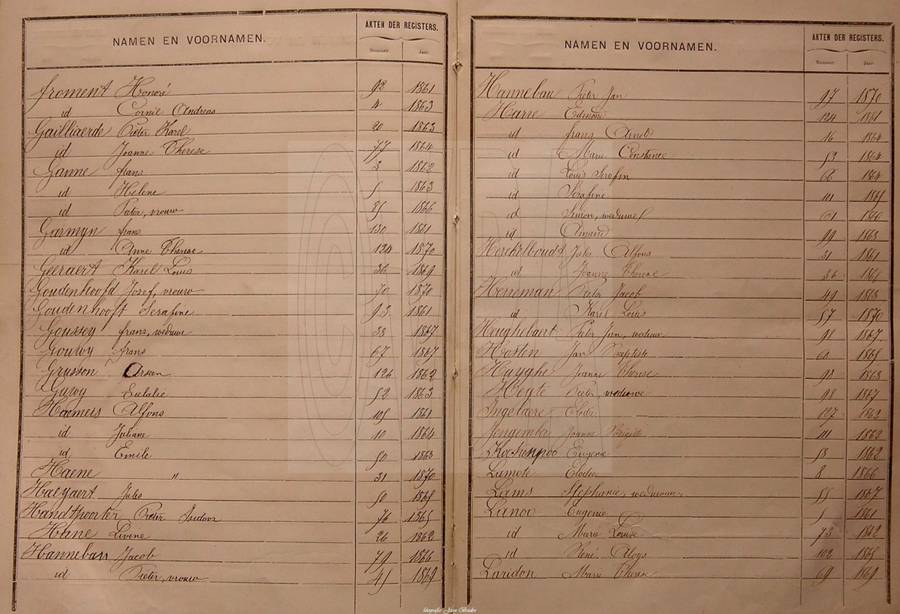 NAMEN EN VOORNAMEN. AKTEN DER REGISTERS.
Nummer. Jaar.
Froment Honoré 92 1861
id Cornil Andreas 4 1863
Gailliaerde Pieter Karel 20 1863
id Joanna Therese 77 1864
Ganne frans 3 1862
id Helene 5 1863
id Pieter, vrouw 35 1866
Garmyn frans 130 1861
id Anne Therese 124 1870
Geeraert Karel Louis 36 1869
Goudenhoofd Josef, vrouw 70 1870
Goudenhooft Serafine 93 1861
Goussey frans, weduwe 33 1867
Gouwy frans 67 1867
Grusson Arsen 126 1862
Guzoy Eulalie 52 1863
Haemers Alfons 105 1861
id Juliane 10 1864
id Emile 50 1863
Haene " 31 1870
Haegaert Jules 50 1865
Handtpoorter Pieter 76 1865
Hane Livine 26 1862
Hannebau Jacob 79 1866
id Pieter, vrouw 41 1869
NAMEN EN VOORNAMEN. AKTEN DER REGISTERS.
Nummer. Jaar.
Hannebau Pieter Jan 97 1870
Harre Edmond 124 1861
id franz 16 1864
id Marie Constance 53 1864
id Louis Serafin 68 1864
id Serafine 111 1865
id Simon, weduwe 61 1866
id Amand 99 1863
Jules Alfons 31 1861
id Joanna Therese 36 1864
Heneman Pieter Jacob 49 1863
id Karel Louis 57 1870
Heughebaert Pieter Jan, 91 1867
Hosten Jan Baptiste 60 1865
Huyghe Joanna Therese 98 1863
Hegte Pieter, weduwe 98 1867
Ingelaere Elodie 127 1862
Joanna Brigitte 111 1862
Eugenie 58 1862
Lamote Elodie 8 1866
Lams Stephanie, 55 1867
Lanoi Eugenie 1 1861
id Marie Louise 73 1862
id René Aloys 102 1865
Laridon Marie Therese 69 1869